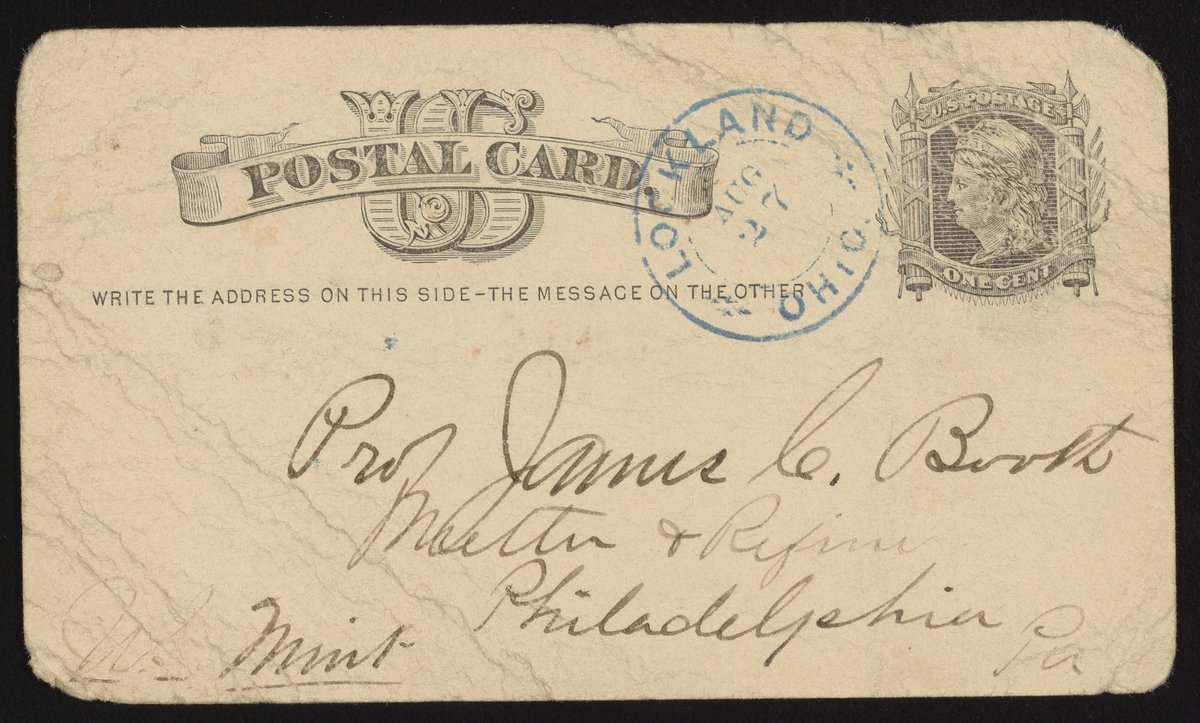 US
POSTAL CARD.
LOCKLAND
AUG
27
OHIO.
U.S. POSTAGE
ONE CENT
WRITE THE ADDRESS ON THIS SIDE–THE MESSAGE ON THE OTHER
Prof James C. Booth
Meltter & Refiner
Philadelphia
Pa
U.S. Mint